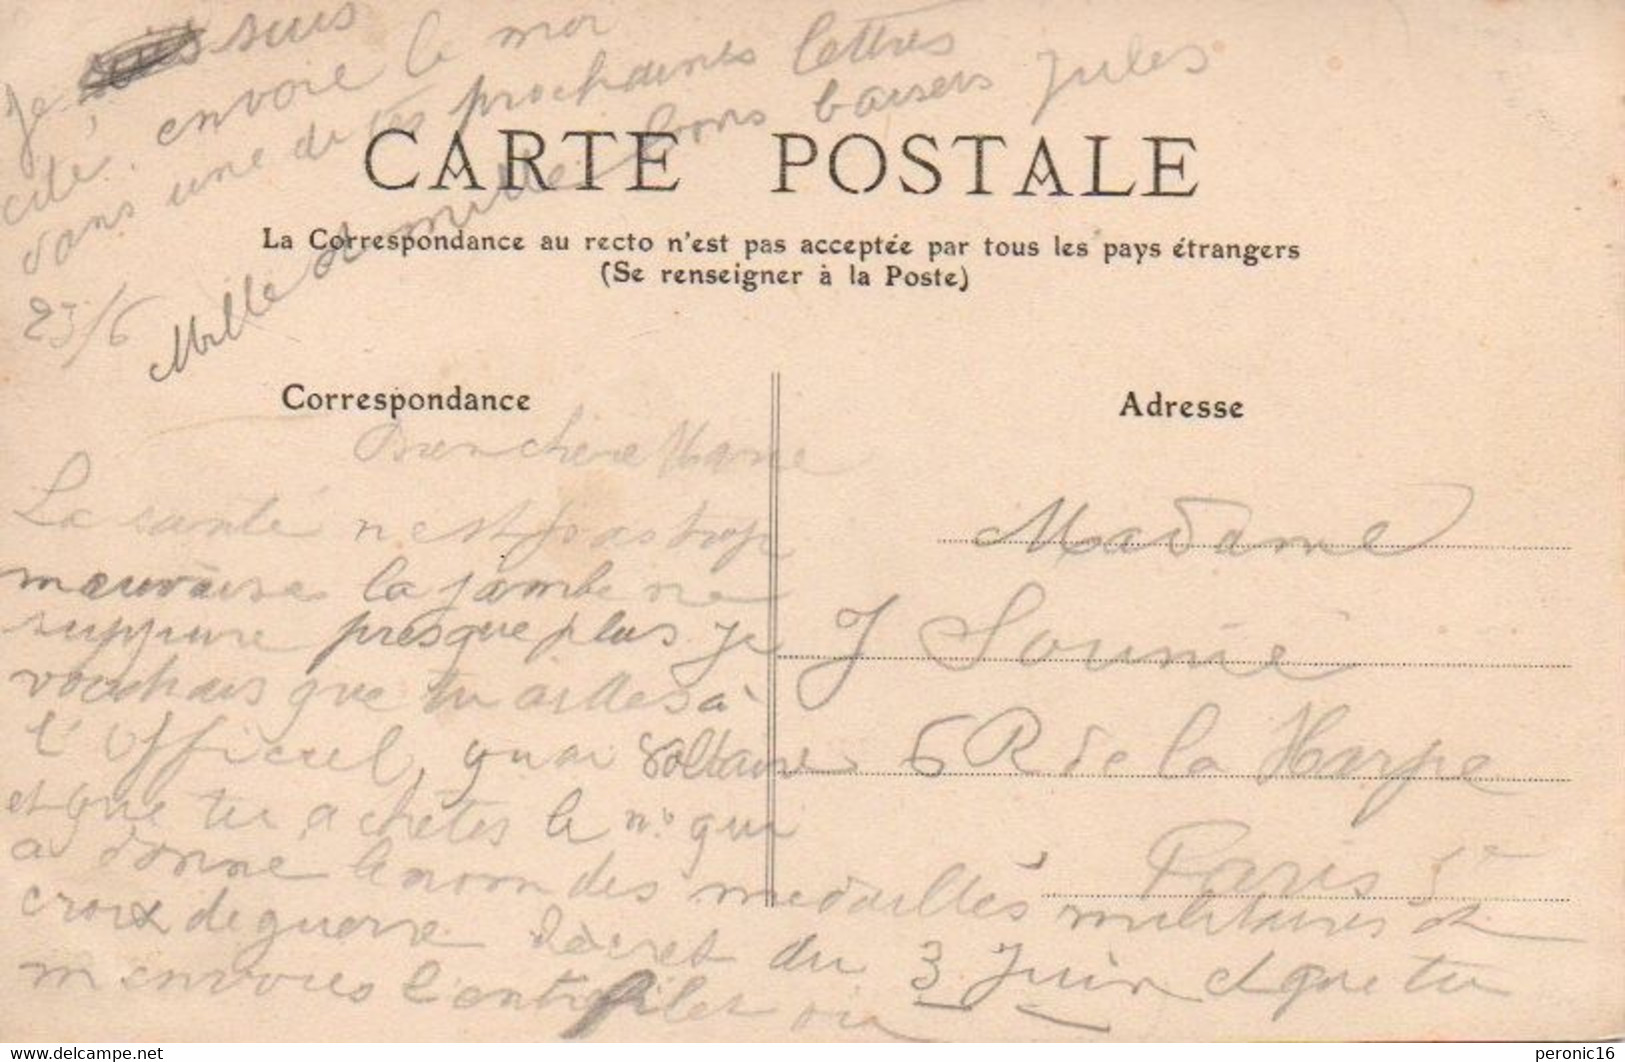 Je suis
cité. envoie le moi
dans une de tes prochaines lettres
Mille et mille bons baisers Jules
23/6
CARTE POSTALE
La Correspondance au recto n'est pas acceptée par tous les pays étrangers
(Se renseigner à la Poste)
Correspondance
Adresse
Bien chère Marie
La santé n'est pas trop
mauvaise la jambe ne
suppure presque plus. Je
voudrais que tu ailles à
l'Officiel, quai Voltaire
et que tu achètes le n° qui
a donné le nom des medaillés militaires et
croix de guerre Décret du 3 Juin et que tu
m'envoies l'entrefilet où
Madame
J Sounié
6 R de la Harpe
Paris 5e
delcampe.net
peronic16